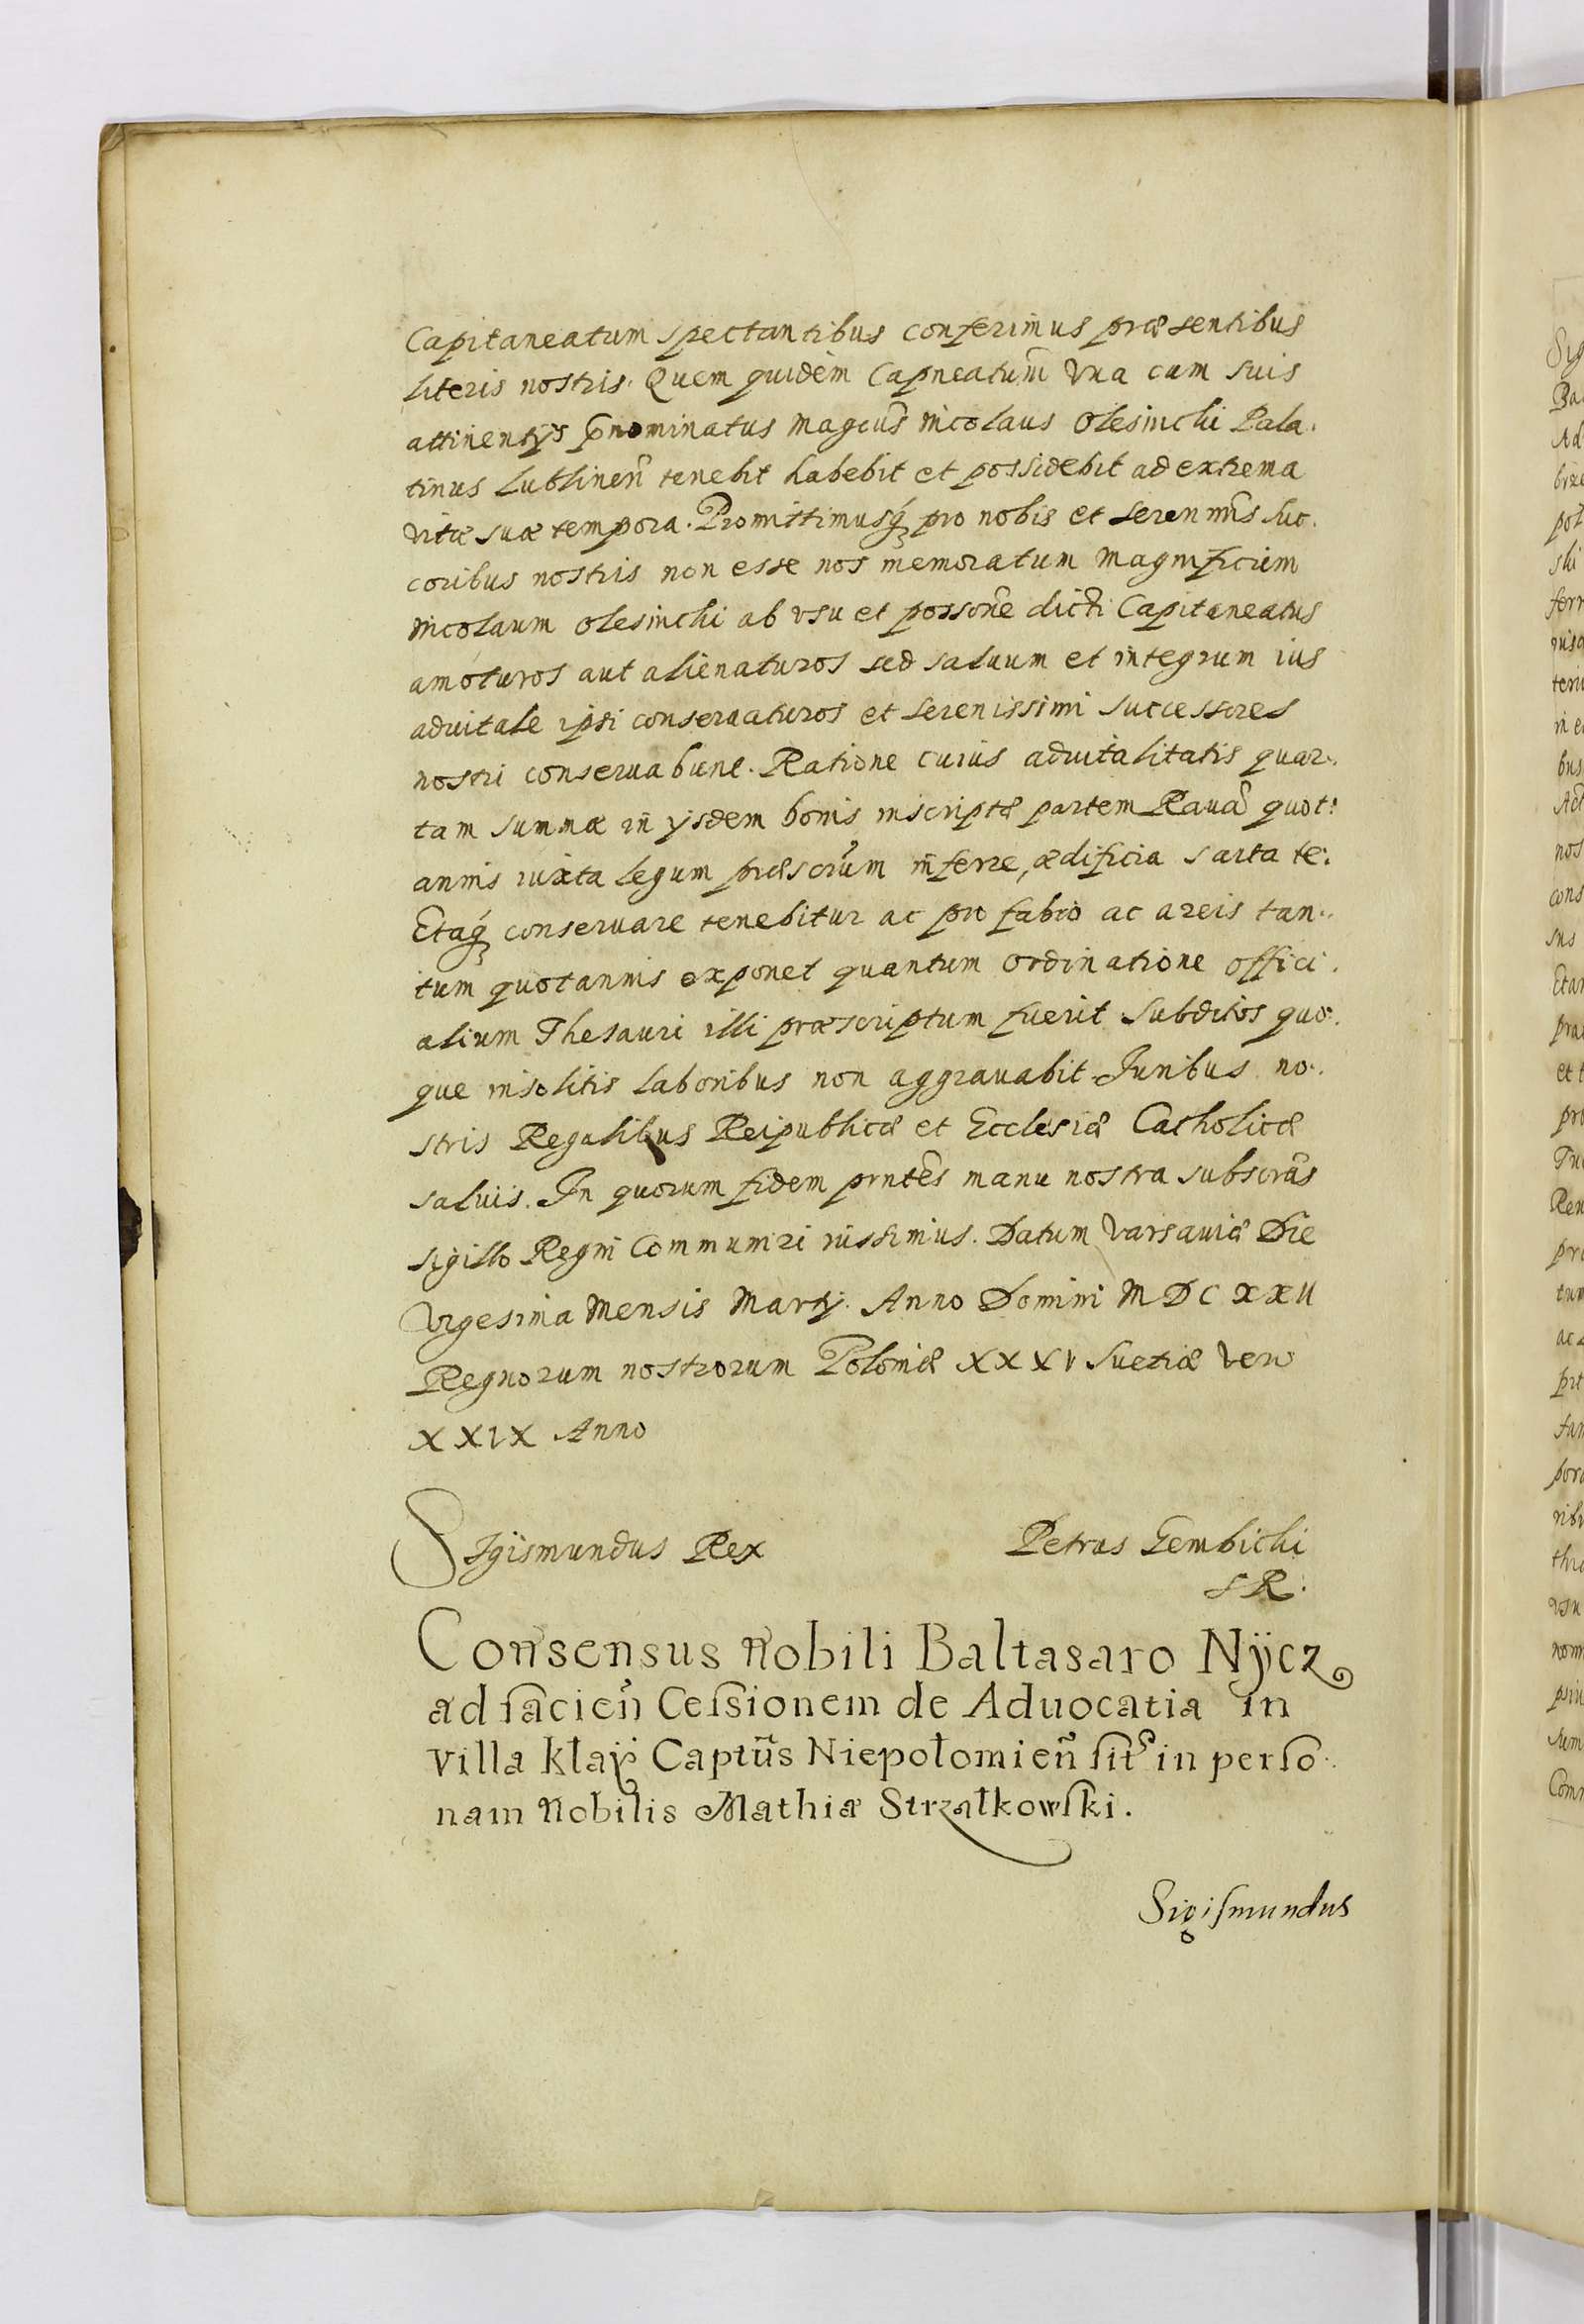 Capitaneatum spectantibus conferimus præsentibus
literis nostris. Quem quidem Capneatum̃ vna cum suis
attinentijs p̃nominatus Magcus̃ Nicolaus Olesincki Pala.
tinus Lublineñ tenebit habebit et possidebit ad extrema
vitæ suæ tempora. Promittimusq́ꝫ pro nobis et serenmis̃ suc.
coribus nostris non esse nos memoratum Magnificum
Nicolaum Olesincki ab vsu et possone̅ dicti Capitaneatus
amoturos aut alienaturos sed saluum et integrum ius
aduitale ipsi conseruaturos et serenissimi successores
nostri conseruabunt. Ratione cuius aduitalitatis quar.
tam summæ in ijsdem bonis inscriptæ partem Rauã quot:
annis iuxta legum præscrũm inferre, ædificia sarta te:
Etaq́ꝫ conseruare tenebitur ac pro fabro ac areis tan..
tum quotannis exponet quantum ordinatione offici.
alium Thesauri illi præscriptum fuerit Subditos quo.
que insolitis laboribus non aggrauabit Iuribus no..
stris Regalibus Reipublicæ et Ecclesiæ Catholicæ
saluis. In quorum fidem prntẽs manu nostra subscrãs
sigillo Regni Communiri iussimus. Datum Varsauiæ Die
Vigesima Mensis Martij. Anno Domini MDCXXII
Regnorum nostrorum Poloniæ XXXV Suetiæ vero
XXIX Anno
Sigismundus Rex
Petrus Gembicki
SR:
Consensus Nobili Baltasaro Nÿcz
ad facieñ Cessionem de Aduocatia in
villa Kłaÿ Captũs Niepołomieñ sit̃ in perso.
nam Nobilis Mathiæ Strzałkowski.
Sigismundus